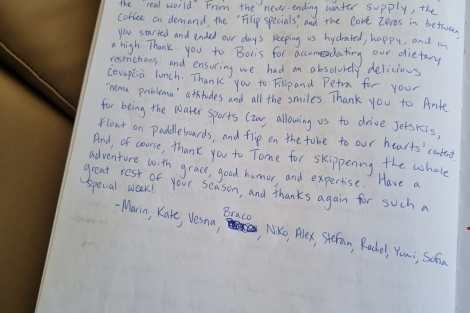 the "real world." From the never-ending water supply, the
coffee on demand, the "Filip specials," and the Coke Zeros in between,
you started and ended our days keeping us hydrated, happy, and on
a high. Thank you to Boris for accomodating our dietary
restrictions and ensuring we had an absolutely delicious
lunch. Thank you to Filip and Petra for your
'nema problema' attitudes and all the smiles. Thank you to Ante
for being the Water Sports Czar, allowing us to drive jetskis,
float on paddleboards, and flip on the tube to our hearts' content.
And, of course, thank you to Tome for skippering the whole
adventure with grace, good humor, and expertise. Have a
great rest of your season, and thanks again for such a
special week!
-Marin, Kate, Vesna, Braco, Niko, Alex, Stefan, Rachel, Yumi, Sofia